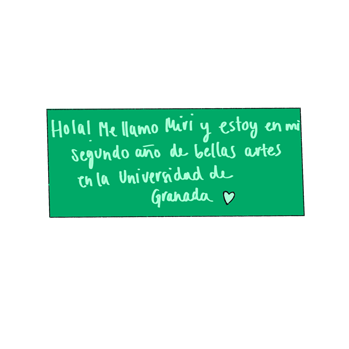 Hola! Me llamo Miri y estoy en mi
segundo año de bellas artes
en la Universidad de
Granada ♡